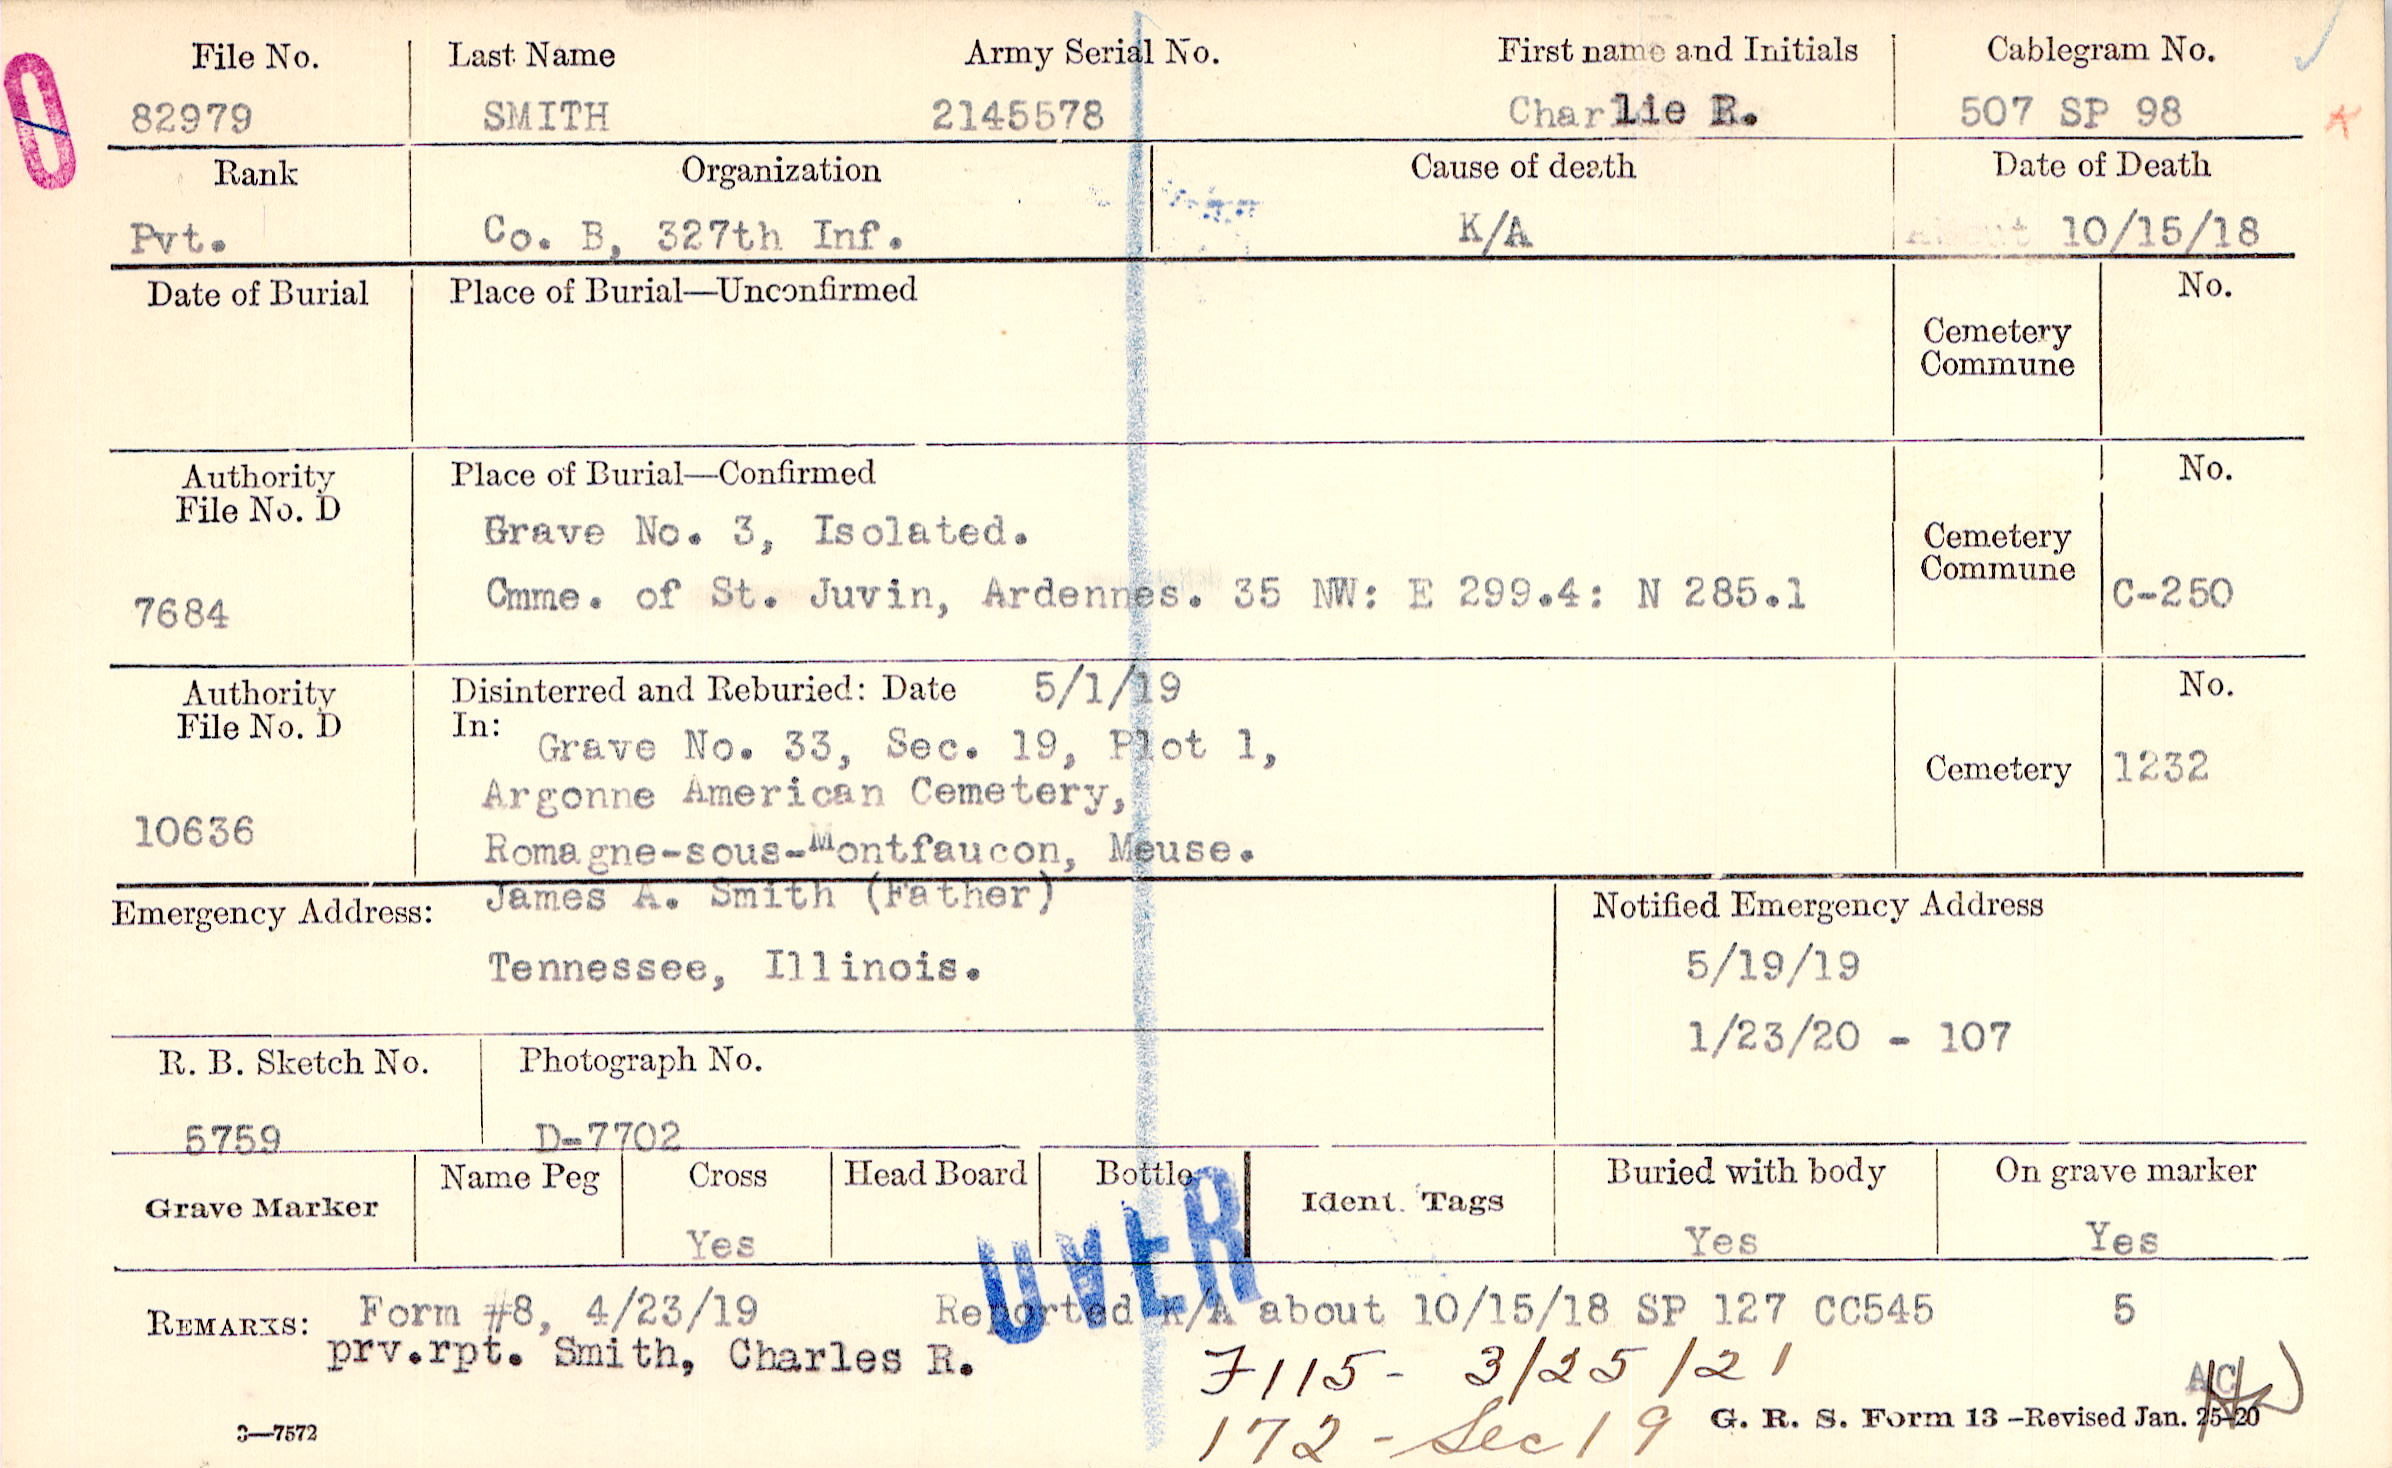 File No. Last Name Army Serial No. First name and Initials Cablegram No.
82979 SMITH 2145578 Charlie R. 507 SP 98
Rank Organization Cause of death Date of Death
Pvt. Co. B, 327th Inf. K/A About 10/15/18
Date of Burial Place of Burial—Unconfirmed No.
Cemetery
Commune
Authority Place of Burial—Confirmed No.
File No. D
Grave No. 3, Isolated.
Cemetery
Commune
7684 Cmme. of St. Juvin, Ardennes. 35 NW: E 299.4: N 285.1 C-250
Authority Disinterred and Reburied: Date 5/1/19 No.
File No. D In:
Grave No. 33, Sec. 19, Plot 1,
Cemetery 1232
Argonne American Cemetery,
10636
Romagne-sous-Montfaucon, Meuse.
Emergency Address: James A. Smith (Father) Notified Emergency Address
Tennessee, Illinois. 5/19/19
1/23/20 - 107
R. B. Sketch No. Photograph No.
5759 D-7702
Grave Marker Name Peg Cross Head Board Bottle Ident. Tags Buried with body On grave marker
Yes Yes Yes
OVER
REMARKS: Form #8, 4/23/19 Reported K/A about 10/15/18 SP 127 CC545 5
prv.rpt. Smith, Charles R.
7115- 3/25/21
AC
172 - Sec 19
3—7572 G. R. S. Form 13 —Revised Jan. 25-20